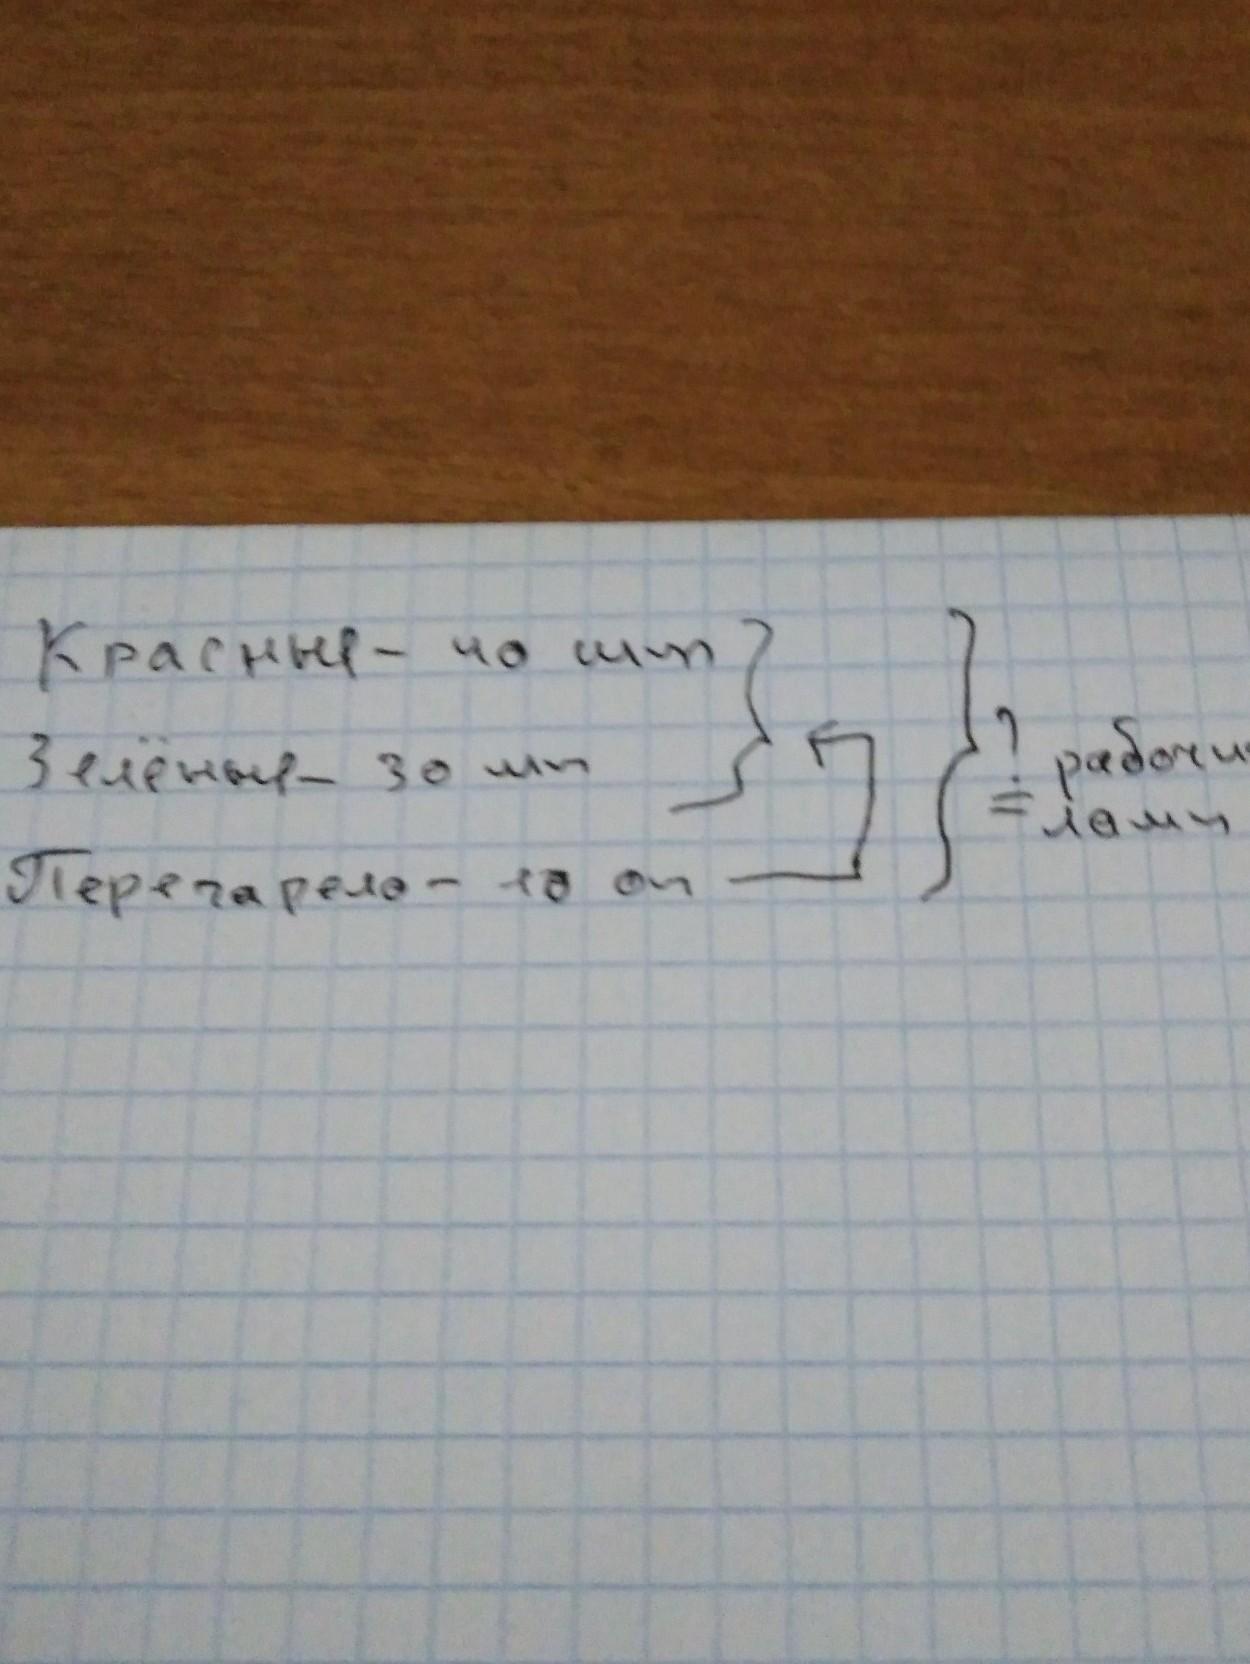 Красные - 40 шт
Зелёные - 30 шт
Перегарело - 10 от
? = рабочи
ламп